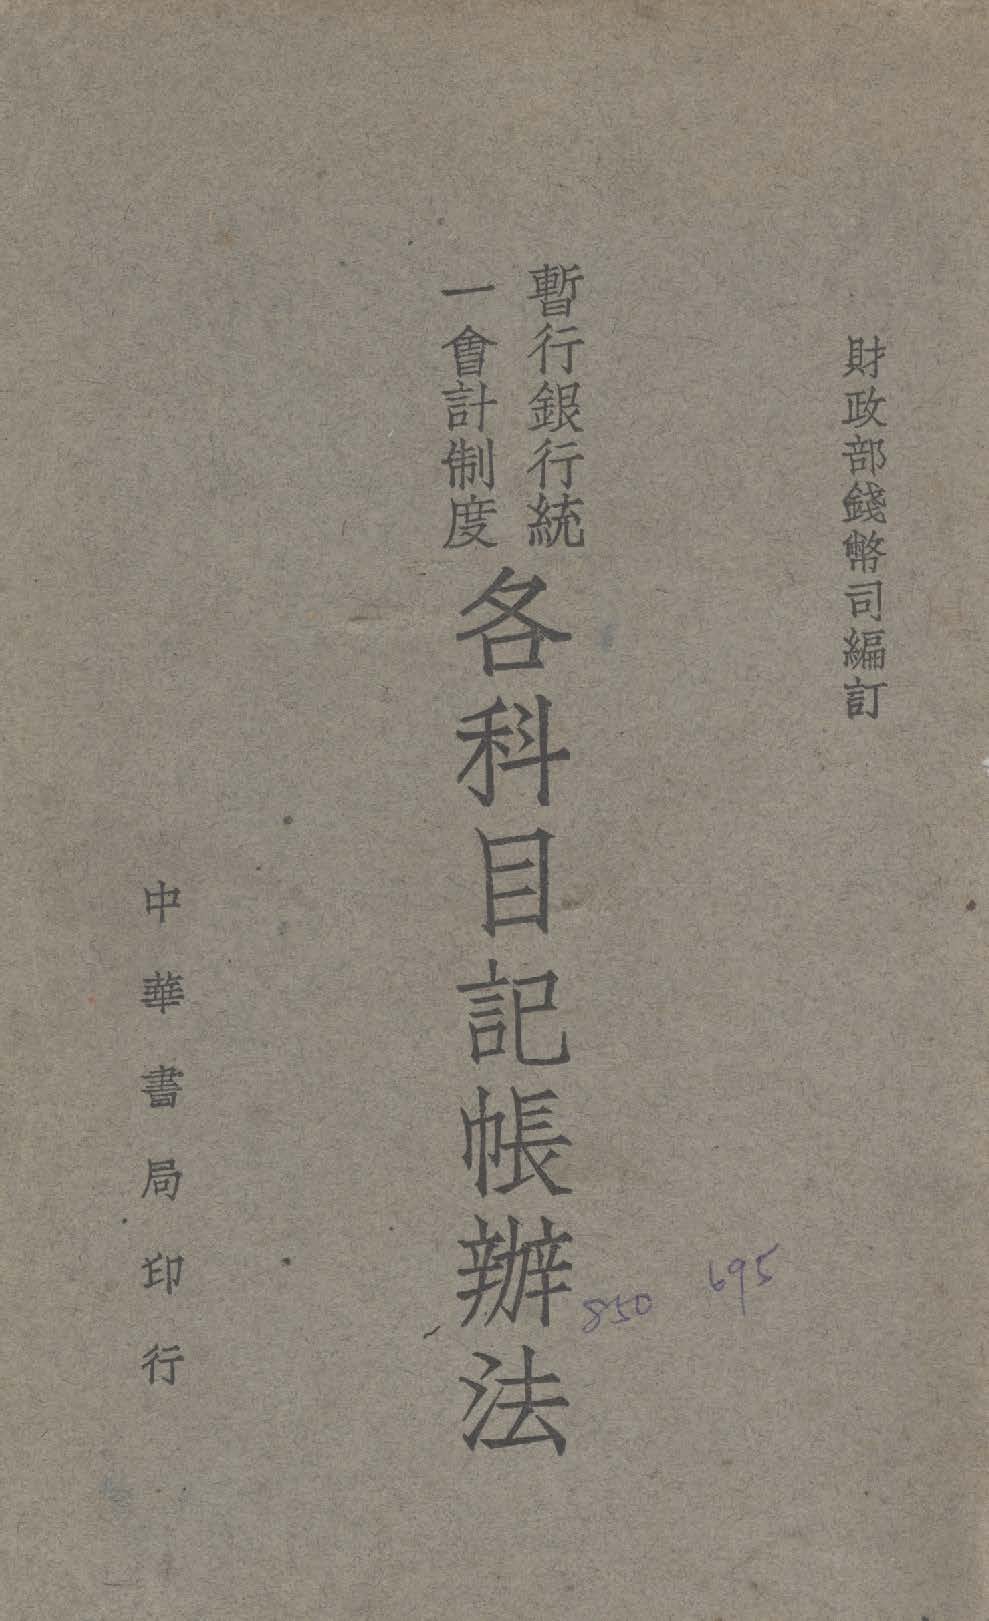 財政部錢幣司編訂
暫行銀行統
一會計制度
各科目記帳辦法
850
695
中華書局印行